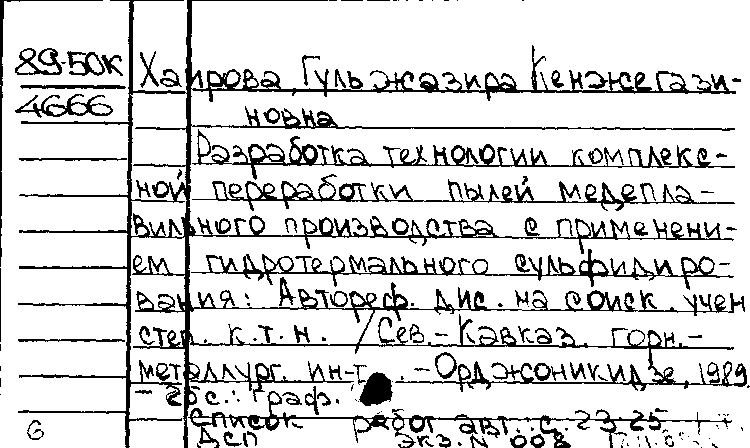 89-50к Хаирова, Гульжазира Кенжегази-
4666 новна
Разработка технологии комплекс-
ной переработки пылей медепла-
вильного производства с применени-
ем гидротермального сульфидиро-
вания: Автореф. дис. на соиск. учен
степ. к.т.н. / Сев.-Кавказ. горн.-
металлург. ин-т. - Орджоникидзе, 1989
с.: граф.
Список работ авт.: с. 23-25
б ДСП экз. N 008